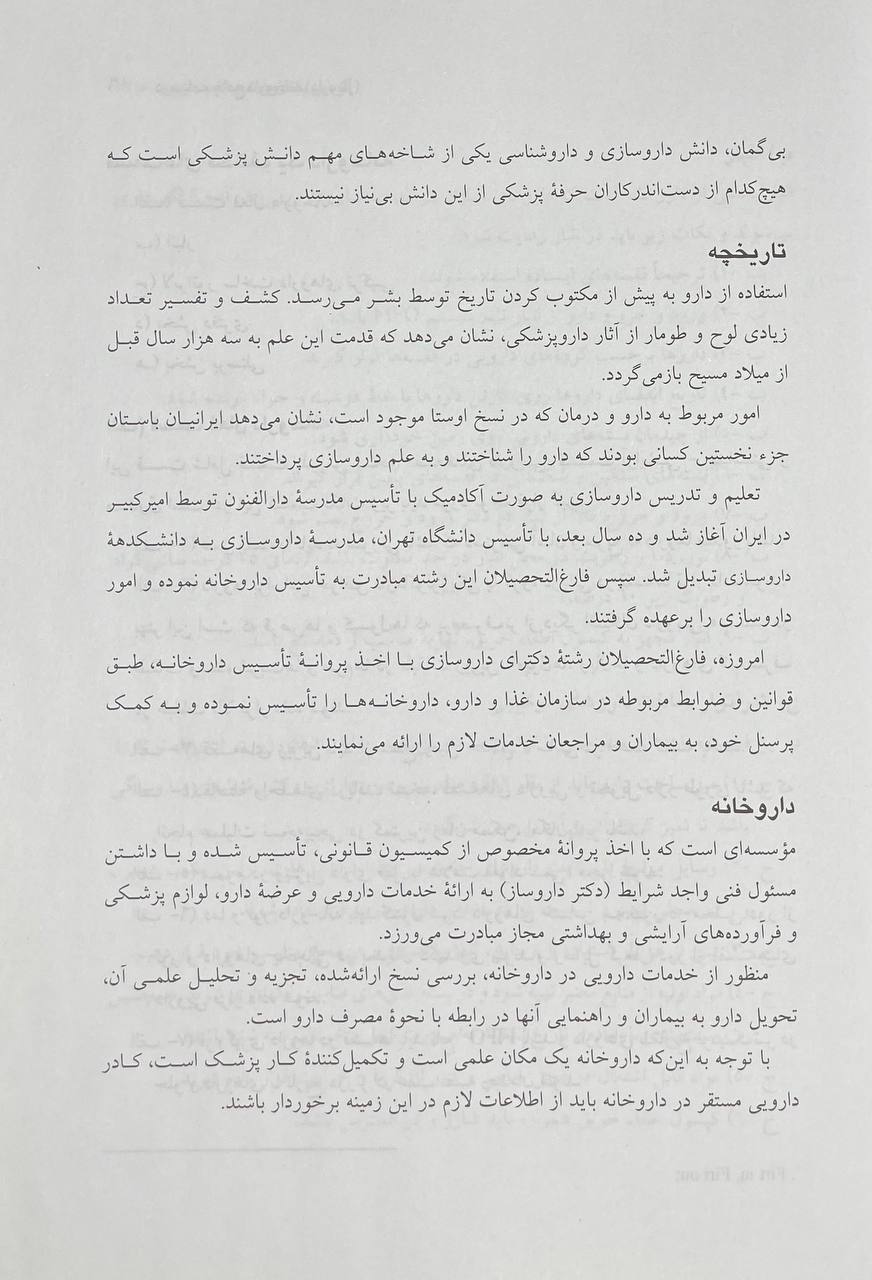 بی‌گمان، دانش داروسازی و داروشناسی یکی از شاخه‌های مهم دانش پزشکی است که
هیچ‌کدام از دست‌اندرکاران حرفهٔ پزشکی از این دانش بی‌نیاز نیستند.
تاریخچه
استفاده از دارو به پیش از مکتوب کردن تاریخ توسط بشر می‌رسد. کشف و تفسیر تعداد
زیادی لوح و طومار از آثار داروپزشکی، نشان می‌دهد که قدمت این علم به سه هزار سال قبل
از میلاد مسیح بازمی‌گردد.
امور مربوط به دارو و درمان که در نسخ اوستا موجود است، نشان می‌دهد ایرانیان باستان
جزء نخستین کسانی بودند که دارو را شناختند و به علم داروسازی پرداختند.
تعلیم و تدریس داروسازی به صورت آکادمیک با تأسیس مدرسهٔ دارالفنون توسط امیرکبیر
در ایران آغاز شد و ده سال بعد، با تأسیس دانشگاه تهران، مدرسهٔ داروسازی به دانشکدهٔ
داروسازی تبدیل شد. سپس فارغ‌التحصیلان این رشته مبادرت به تأسیس داروخانه نموده و امور
داروسازی را برعهده گرفتند.
امروزه، فارغ‌التحصیلان رشتهٔ دکترای داروسازی با اخذ پروانهٔ تأسیس داروخانه، طبق
قوانین و ضوابط مربوطه در سازمان غذا و دارو، داروخانه‌ها را تأسیس نموده و به کمک
پرسنل خود، به بیماران و مراجعان خدمات لازم را ارائه می‌نمایند.
داروخانه
مؤسسه‌ای است که با اخذ پروانهٔ مخصوص از کمیسیون قانونی، تأسیس شده و با داشتن
مسئول فنی واجد شرایط (دکتر داروساز) به ارائهٔ خدمات دارویی و عرضهٔ دارو، لوازم پزشکی
و فرآورده‌های آرایشی و بهداشتی مجاز مبادرت می‌ورزد.
منظور از خدمات دارویی در داروخانه، بررسی نسخ ارائه‌شده، تجزیه و تحلیل علمی آن،
تحویل دارو به بیماران و راهنمایی آنها در رابطه با نحوهٔ مصرف دارو است.
با توجه به این‌که داروخانه یک مکان علمی است و تکمیل‌کنندهٔ کار پزشک است، کادر
دارویی مستقر در داروخانه باید از اطلاعات لازم در این زمینه برخوردار باشند.